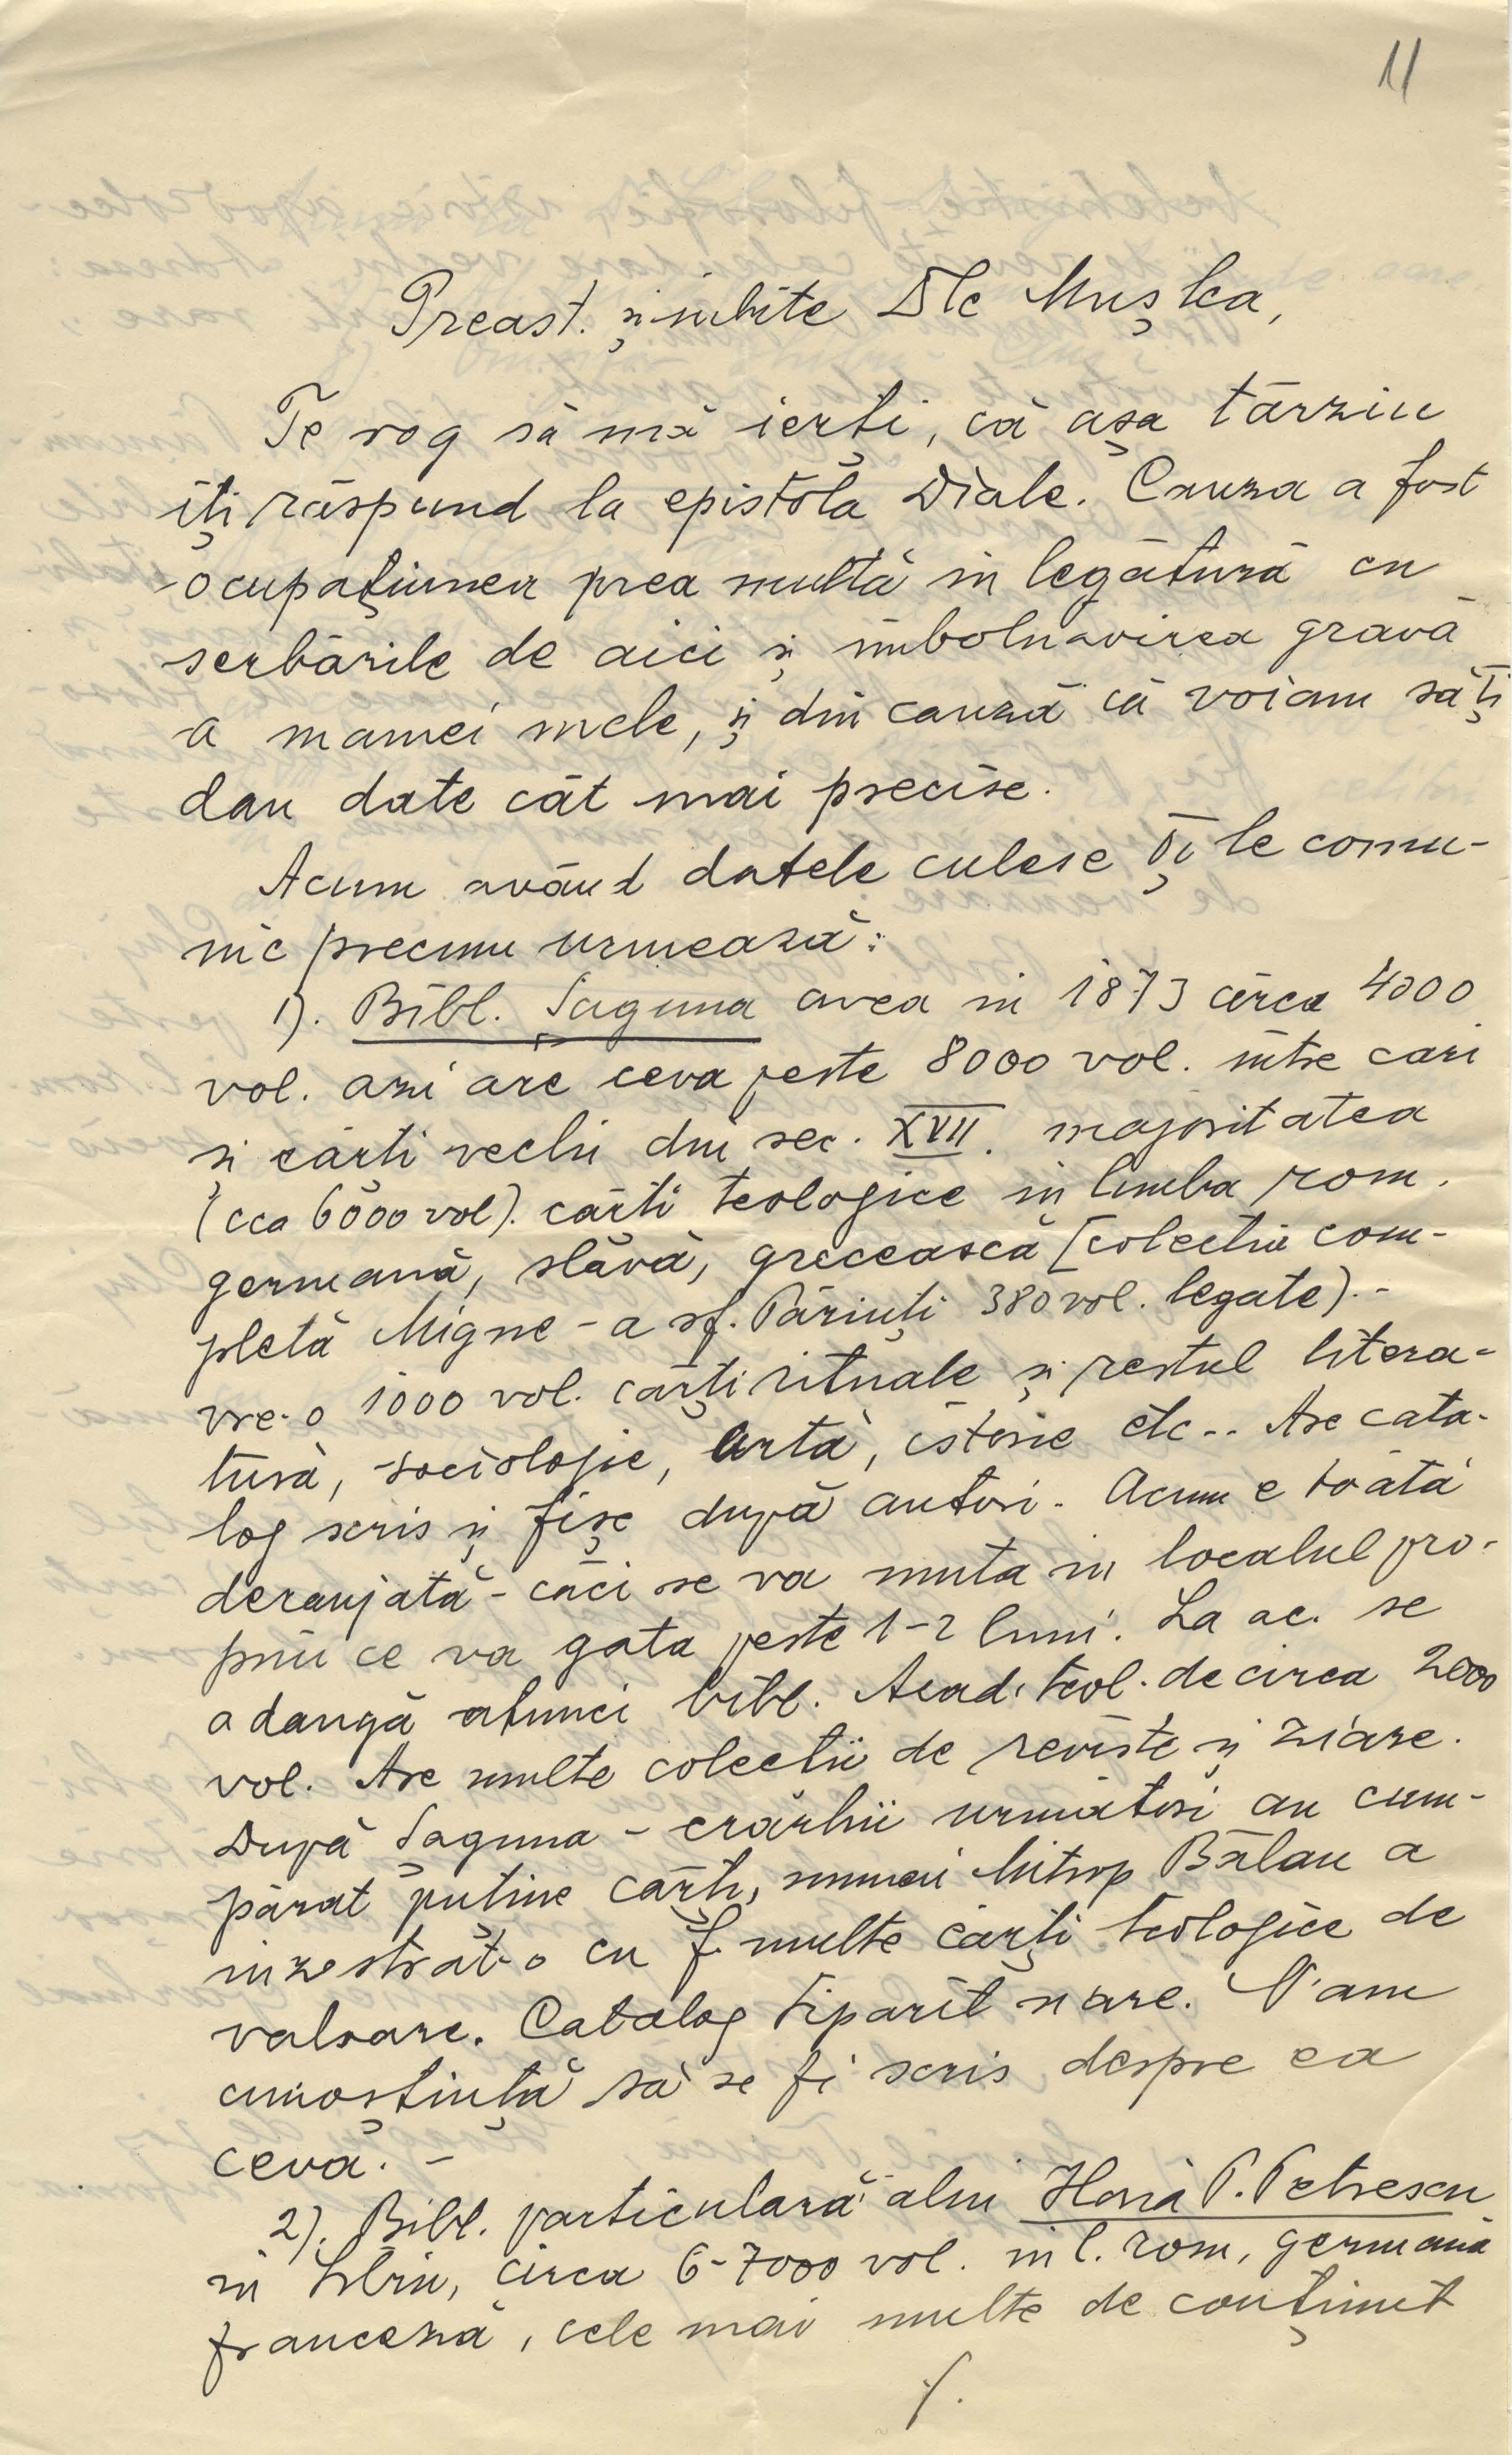 11
Preast. și iubite Dle Mușlea,
Te rog să mă ierți, că așa târziu
îți răspund la epistola Diale. Cauza a fost
ocupațiunea prea multă in legătură cu
serbările de aici și imbolnavirea gravă
a mamei mele, și din cauză că voiam să ți
dau date cât mai precise.
Acum având datele culese Ți le comu-
nic precum urmează:
1). Bibl. Șaguna avea in 1873 circa 4000
vol. azi are ceva peste 8000 vol. intre cari
și cărti vechi din sec. XVII. majoritatea
(cca 6000 vol). cărti teologice in limba rom.
germană, slavă, grecească [colectia com-
pletă Migne - a sf. Părinți 380 vol. legate). -
vre-o 1000 vol. cărți rituale și restul litera-
tură, sociologie, artă, istorie etc.. Are cata-
log scris și fișe după autori. Acum e toată
deranjată - căci se va muta in localul pro-
priu ce va gata peste 1-2 luni. La ac. se
adaugă atunci bibl. Acad. teol. de circa 2000
vol. Are multe colectii de reviste și ziare.
După Șaguna - erarhii următori au cum-
părat puține cărți, numai Mitrop Bălan a
inzestrat-o cu f. multe cărți teologice de
valoare. Catalog tipărit n are. N'am
cunoștință să se fi scris despre ea
ceva. -
2). Bibl. particulară alui Horia P. Petrescu
in Sibiu, circa 6-7000 vol. in l. rom, germană
franceza, cele mai multe de conținut
./.